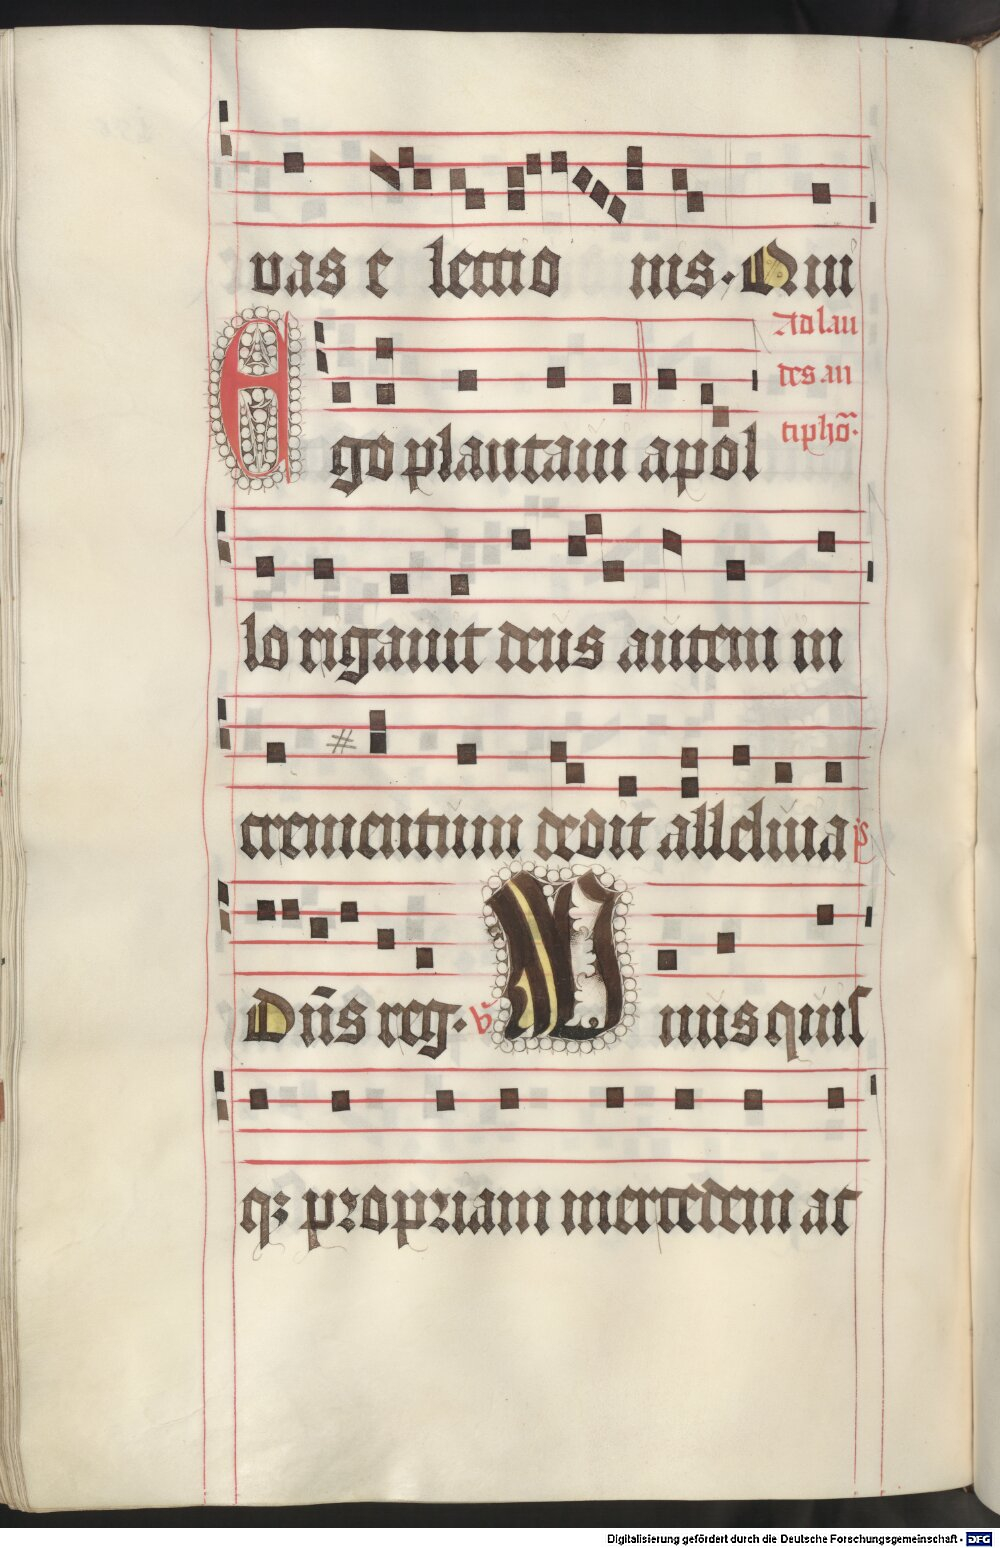 vas e lectio nis. Qui
Ad lau
des an
tipho͞.
Ego plantaui apol
lo rigauit deus autem in
crementum dedit alleluia ps
Dn̄s reg. V̄ Unusquis
qz propriam mercedem ac
Digitalisierung gefördert durch die Deutsche Forschungsgemeinschaft - DFG